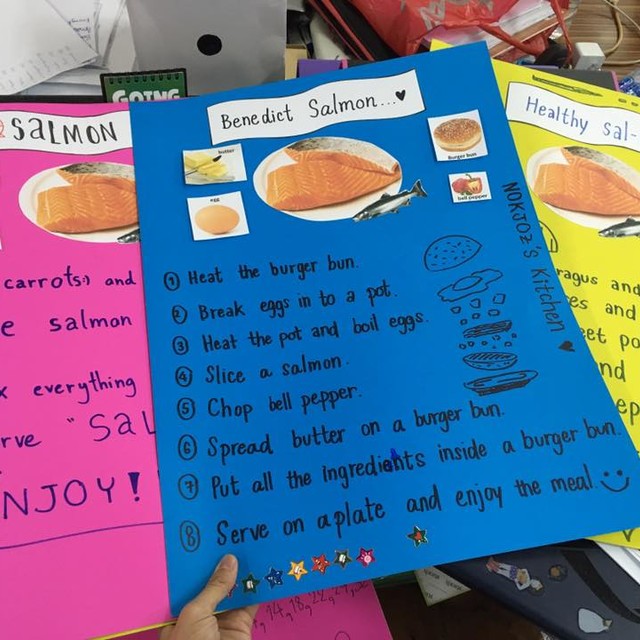 GOING
SALMON
carrots:) and
e salmon
x everything
rve "SAL
NJOY!
Benedict Salmon...♥
butter
egg
Burger bun
bell pepper
NOKJOZ's Kitchen ♥
① Heat the burger bun.
② Break eggs in to a pot.
③ Heat the pot and boil eggs.
④ Slice a salmon.
⑤ Chop bell pepper.
⑥ Spread butter on a burger bun.
⑦ Put all the ingredients inside a burger bun.
⑧ Serve on a plate and enjoy the meal
Healthy sal-
ragus and
es and
eet po
nd
ep